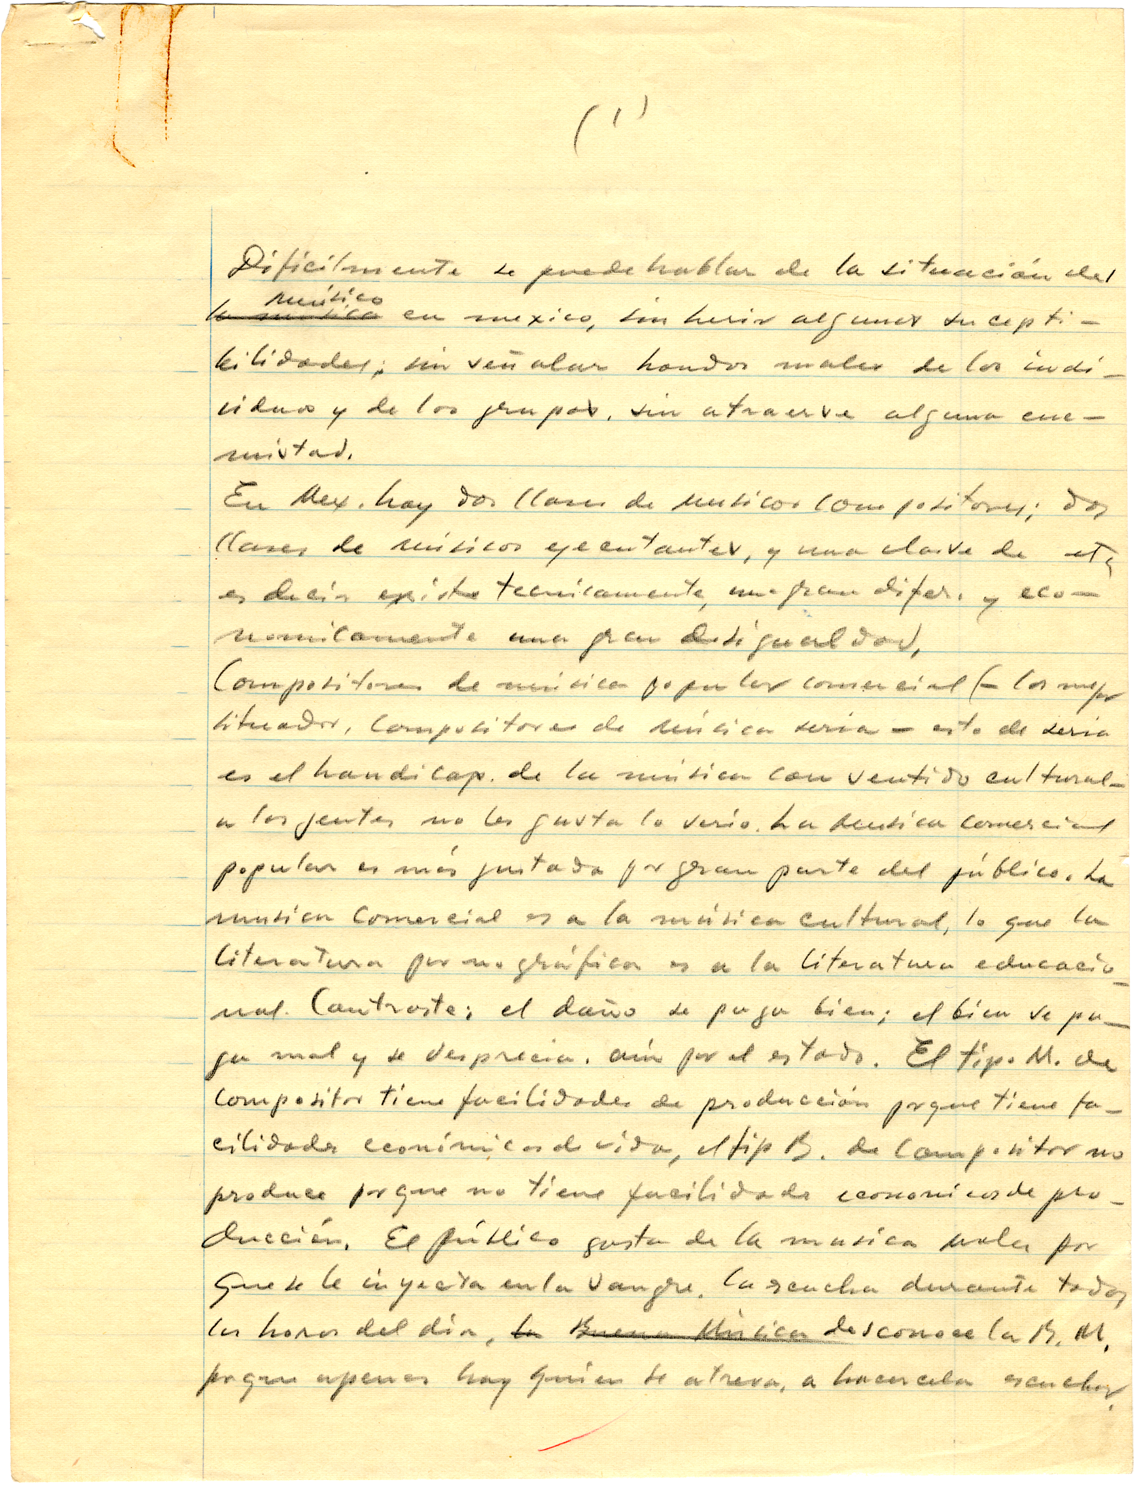 (1)
Dificilmente se puede hablar de la situación del
la musica músico en mexico, sin herir algunas sucepti-
bilidades; sin señalar hondos males de los indi-
viduos y de los grupos, sin atraerse alguna ene-
mistad.
En Mex. hay dos clases de musicos compositores; dos
clases de músicos ejecutantes, y una clase de
es decir existe tecnicamente, una gran difer. y eco-
nomicamente una gran desigualdad,
Compositores de música popular comercial (- los mejor
situados, compositores de música seria - esto de seria
es el handicap. de la música con sentido cultural-
a las gentes no les gusta lo serio. La musica comercial
popular es más gustada por gran parte del público. La
musica comercial es a la música cultural, lo que la
literatura pornográfica es a la literatura educacio-
nal. Contraste; el daño se paga bien; el bien se pa-
ga mal y se desprecia. aún por el estado. El tipo M. de
compositor tiene facilidades de producción porque tiene fa-
cilidades económicas de vida, el tip B. de compositor no
produce porque no tiene facilidade economicas de pro-
ducción. El público gusta de la musica mala por
que se le inyecta en la sangre. la escucha durante todas
las horas del día, la Buena Música desconoce la B. M.
porque apenas hay quien se atreva, a hacercela escuchar,